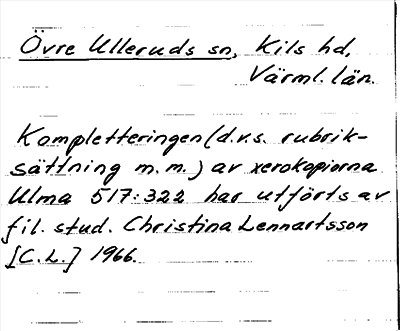 Övre Ulleruds sn, Kils hd,
Värml. län.
Kompletteringen (d.v.s. rubrik-
sättning m.m.) av xerokopiorna
Ulma 517:322 har utförts av
fil. stud. Christina Lennartsson
[C.L.] 1966.